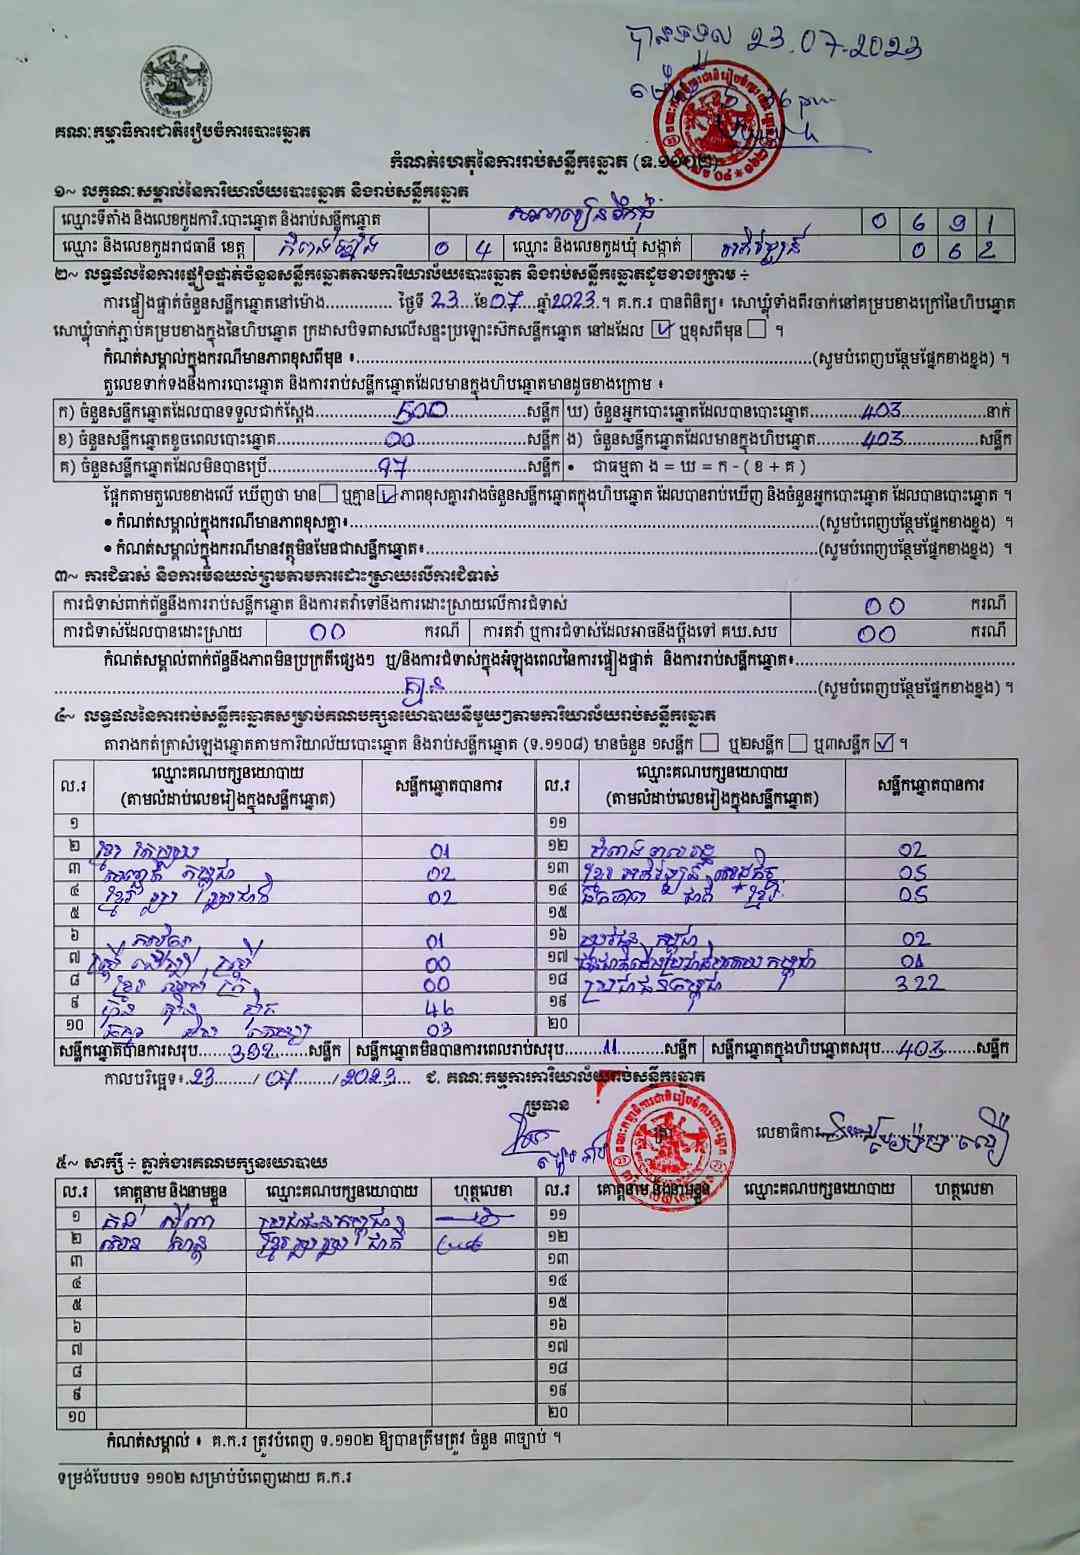 បានទទួល 23.07.2023
គណៈកម្មាធិការជាតិរៀបចំការបោះឆ្នោត
កំណត់ហេតុនៃការរាប់សន្លឹកឆ្នោត (ទ.១១០២)
១~ លក្ខណៈសម្គាល់នៃការិយាល័យបោះឆ្នោត និងរាប់សន្លឹកឆ្នោត
ឈ្មោះទីតាំង និងលេខកូដការិ.បោះឆ្នោត និងរាប់សន្លឹកឆ្នោត 0 6 9 1
ឈ្មោះ និងលេខកូដរាជធានី ខេត្ត កំពង់ឆ្នាំង 0 4 ឈ្មោះ និងលេខកូដឃុំ សង្កាត់ 0 6 2
២~ លទ្ធផលនៃការផ្ទៀងផ្ទាត់ចំនួនសន្លឹកឆ្នោតតាមការិយាល័យបោះឆ្នោត និងរាប់សន្លឹកឆ្នោតដូចខាងក្រោម ÷
ការផ្ទៀងផ្ទាត់ចំនួនសន្លឹកឆ្នោតនៅម៉ោង.............. ថ្ងៃទី 23...ខែ07...ឆ្នាំ2023.។ គ.ក.រ បានពិនិត្យ៖ សោឃ្លុំទាំងពីរចាក់នៅគម្របខាងក្រៅនៃហិបឆ្នោត
សោឃ្លុំចាក់ភ្ជាប់គម្របខាងក្នុងនៃហិបឆ្នោត ក្រដាសបិទពាសលើសន្ទះប្រឡោះសឹកសន្លឹកឆ្នោត នៅដដែល ☑ ឬខុសពីមុន ☐ ។
កំណត់សម្គាល់ក្នុងករណីមានភាពខុសពីមុន ៖..............................(សូមបំពេញបន្ថែមផ្នែកខាងខ្នង) ។
តួលេខទាក់ទងនឹងការបោះឆ្នោត និងការរាប់សន្លឹកឆ្នោតដែលមានក្នុងហិបឆ្នោតមានដូចខាងក្រោម ៖
ក) ចំនួនសន្លឹកឆ្នោតដែលបានទទួលជាក់ស្តែង........500........សន្លឹក ឃ) ចំនួនអ្នកបោះឆ្នោតដែលបានបោះឆ្នោត........403........នាក់
ខ) ចំនួនសន្លឹកឆ្នោតខូចពេលបោះឆ្នោត........00........សន្លឹក ង) ចំនួនសន្លឹកឆ្នោតដែលមានក្នុងហិបឆ្នោត........403........សន្លឹក
គ) ចំនួនសន្លឹកឆ្នោតដែលមិនបានប្រើ........97........សន្លឹក • ជាធម្មតា ង = ឃ = ក - ( ខ + គ )
ផ្អែកតាមតួលេខខាងលើ ឃើញថា មាន☐ ឬគ្មាន☑ ភាពខុសគ្នារវាងចំនួនសន្លឹកឆ្នោតក្នុងហិបឆ្នោត ដែលបានរាប់ឃើញ និងចំនួនអ្នកបោះឆ្នោត ដែលបានបោះឆ្នោត ។
• កំណត់សម្គាល់ក្នុងករណីមានភាពខុសគ្នា៖..............................(សូមបំពេញបន្ថែមផ្នែកខាងខ្នង) ។
• កំណត់សម្គាល់ក្នុងករណីមានវត្ថុមិនមែនជាសន្លឹកឆ្នោត៖..............................(សូមបំពេញបន្ថែមផ្នែកខាងខ្នង) ។
៣~ ការជំទាស់ និងការមិនយល់ព្រមតាមការដោះស្រាយលើការជំទាស់
ការជំទាស់ពាក់ព័ន្ធនឹងការរាប់សន្លឹកឆ្នោត និងការតវ៉ាទៅនឹងការដោះស្រាយលើការជំទាស់ 00 ករណី
ការជំទាស់ដែលបានដោះស្រាយ 00 ករណី ការតវ៉ា ឬការជំទាស់ដែលអាចនឹងប្តឹងទៅ គឃ.សប 00 ករណី
កំណត់សម្គាល់ពាក់ព័ន្ធនឹងភាពមិនប្រក្រតីផ្សេងៗ ឬ/និងការជំទាស់ក្នុងអំឡុងពេលនៃការផ្ទៀងផ្ទាត់ និងការរាប់សន្លឹកឆ្នោត៖..............................
..............................គ្មាន..............................(សូមបំពេញបន្ថែមផ្នែកខាងខ្នង) ។
៤~ លទ្ធផលនៃការរាប់សន្លឹកឆ្នោតសម្រាប់គណបក្សនយោបាយនីមួយៗតាមការិយាល័យរាប់សន្លឹកឆ្នោត
តារាងកត់ត្រាសំឡេងឆ្នោតតាមការិយាល័យបោះឆ្នោត និងរាប់សន្លឹកឆ្នោត (ទ.១១០៨) មានចំនួន ១សន្លឹក ☐ ឬ២សន្លឹក ☐ ឬ៣សន្លឹក ☑ ។
ល.រ ឈ្មោះគណបក្សនយោបាយ (តាមលំដាប់លេខរៀងក្នុងសន្លឹកឆ្នោត) សន្លឹកឆ្នោតបានការ ល.រ ឈ្មោះគណបក្សនយោបាយ (តាមលំដាប់លេខរៀងក្នុងសន្លឹកឆ្នោត) សន្លឹកឆ្នោតបានការ
១ ១១
២ 01 ១២ 02
៣ 02 ១៣ 05
៤ ខ្មែរ រួបរួមជាតិ 02 ១៤ ធិបតេយ្យ ជាតិ ខ្មែរ 05
៥ ១៥
៦ 01 ១៦ យុវជន កម្ពុជា 02
៧ 00 ១៧ 01
៨ 00 ១៨ ប្រជាជនកម្ពុជា 322
៩ ហ៊្វុនស៊ិនប៉ិច 46 ១៩
១០ 03 ២០
សន្លឹកឆ្នោតបានការសរុប......392......សន្លឹក សន្លឹកឆ្នោតមិនបានការពេលរាប់សរុប......11......សន្លឹក សន្លឹកឆ្នោតក្នុងហិបឆ្នោតសរុប...403...សន្លឹក
កាលបរិច្ឆេទ៖.23......../.07......../..2023... ជ. គណៈកម្មការការិយាល័យរាប់សន្លឹកឆ្នោត
ប្រធាន
លេខាធិការ
៥~ សាក្សី ÷ ភ្នាក់ងារគណបក្សនយោបាយ
ល.រ គោត្តនាម និងនាមខ្លួន ឈ្មោះគណបក្សនយោបាយ ហត្ថលេខា ល.រ គោត្តនាម និងនាមខ្លួន ឈ្មោះគណបក្សនយោបាយ ហត្ថលេខា
១ ប្រជាជនកម្ពុជា ១១
២ ខ្មែររួបរួម ជាតិ ១២
៣ ១៣
៤ ១៤
៥ ១៥
៦ ១៦
៧ ១៧
៨ ១៨
៩ ១៩
១០ ២០
កំណត់សម្គាល់ ៖ គ.ក.រ ត្រូវបំពេញ ទ.១១០២ ឱ្យបានត្រឹមត្រូវ ចំនួន ៣ច្បាប់ ។
ទម្រង់បែបបទ ១១០២ សម្រាប់បំពេញដោយ គ.ក.រ